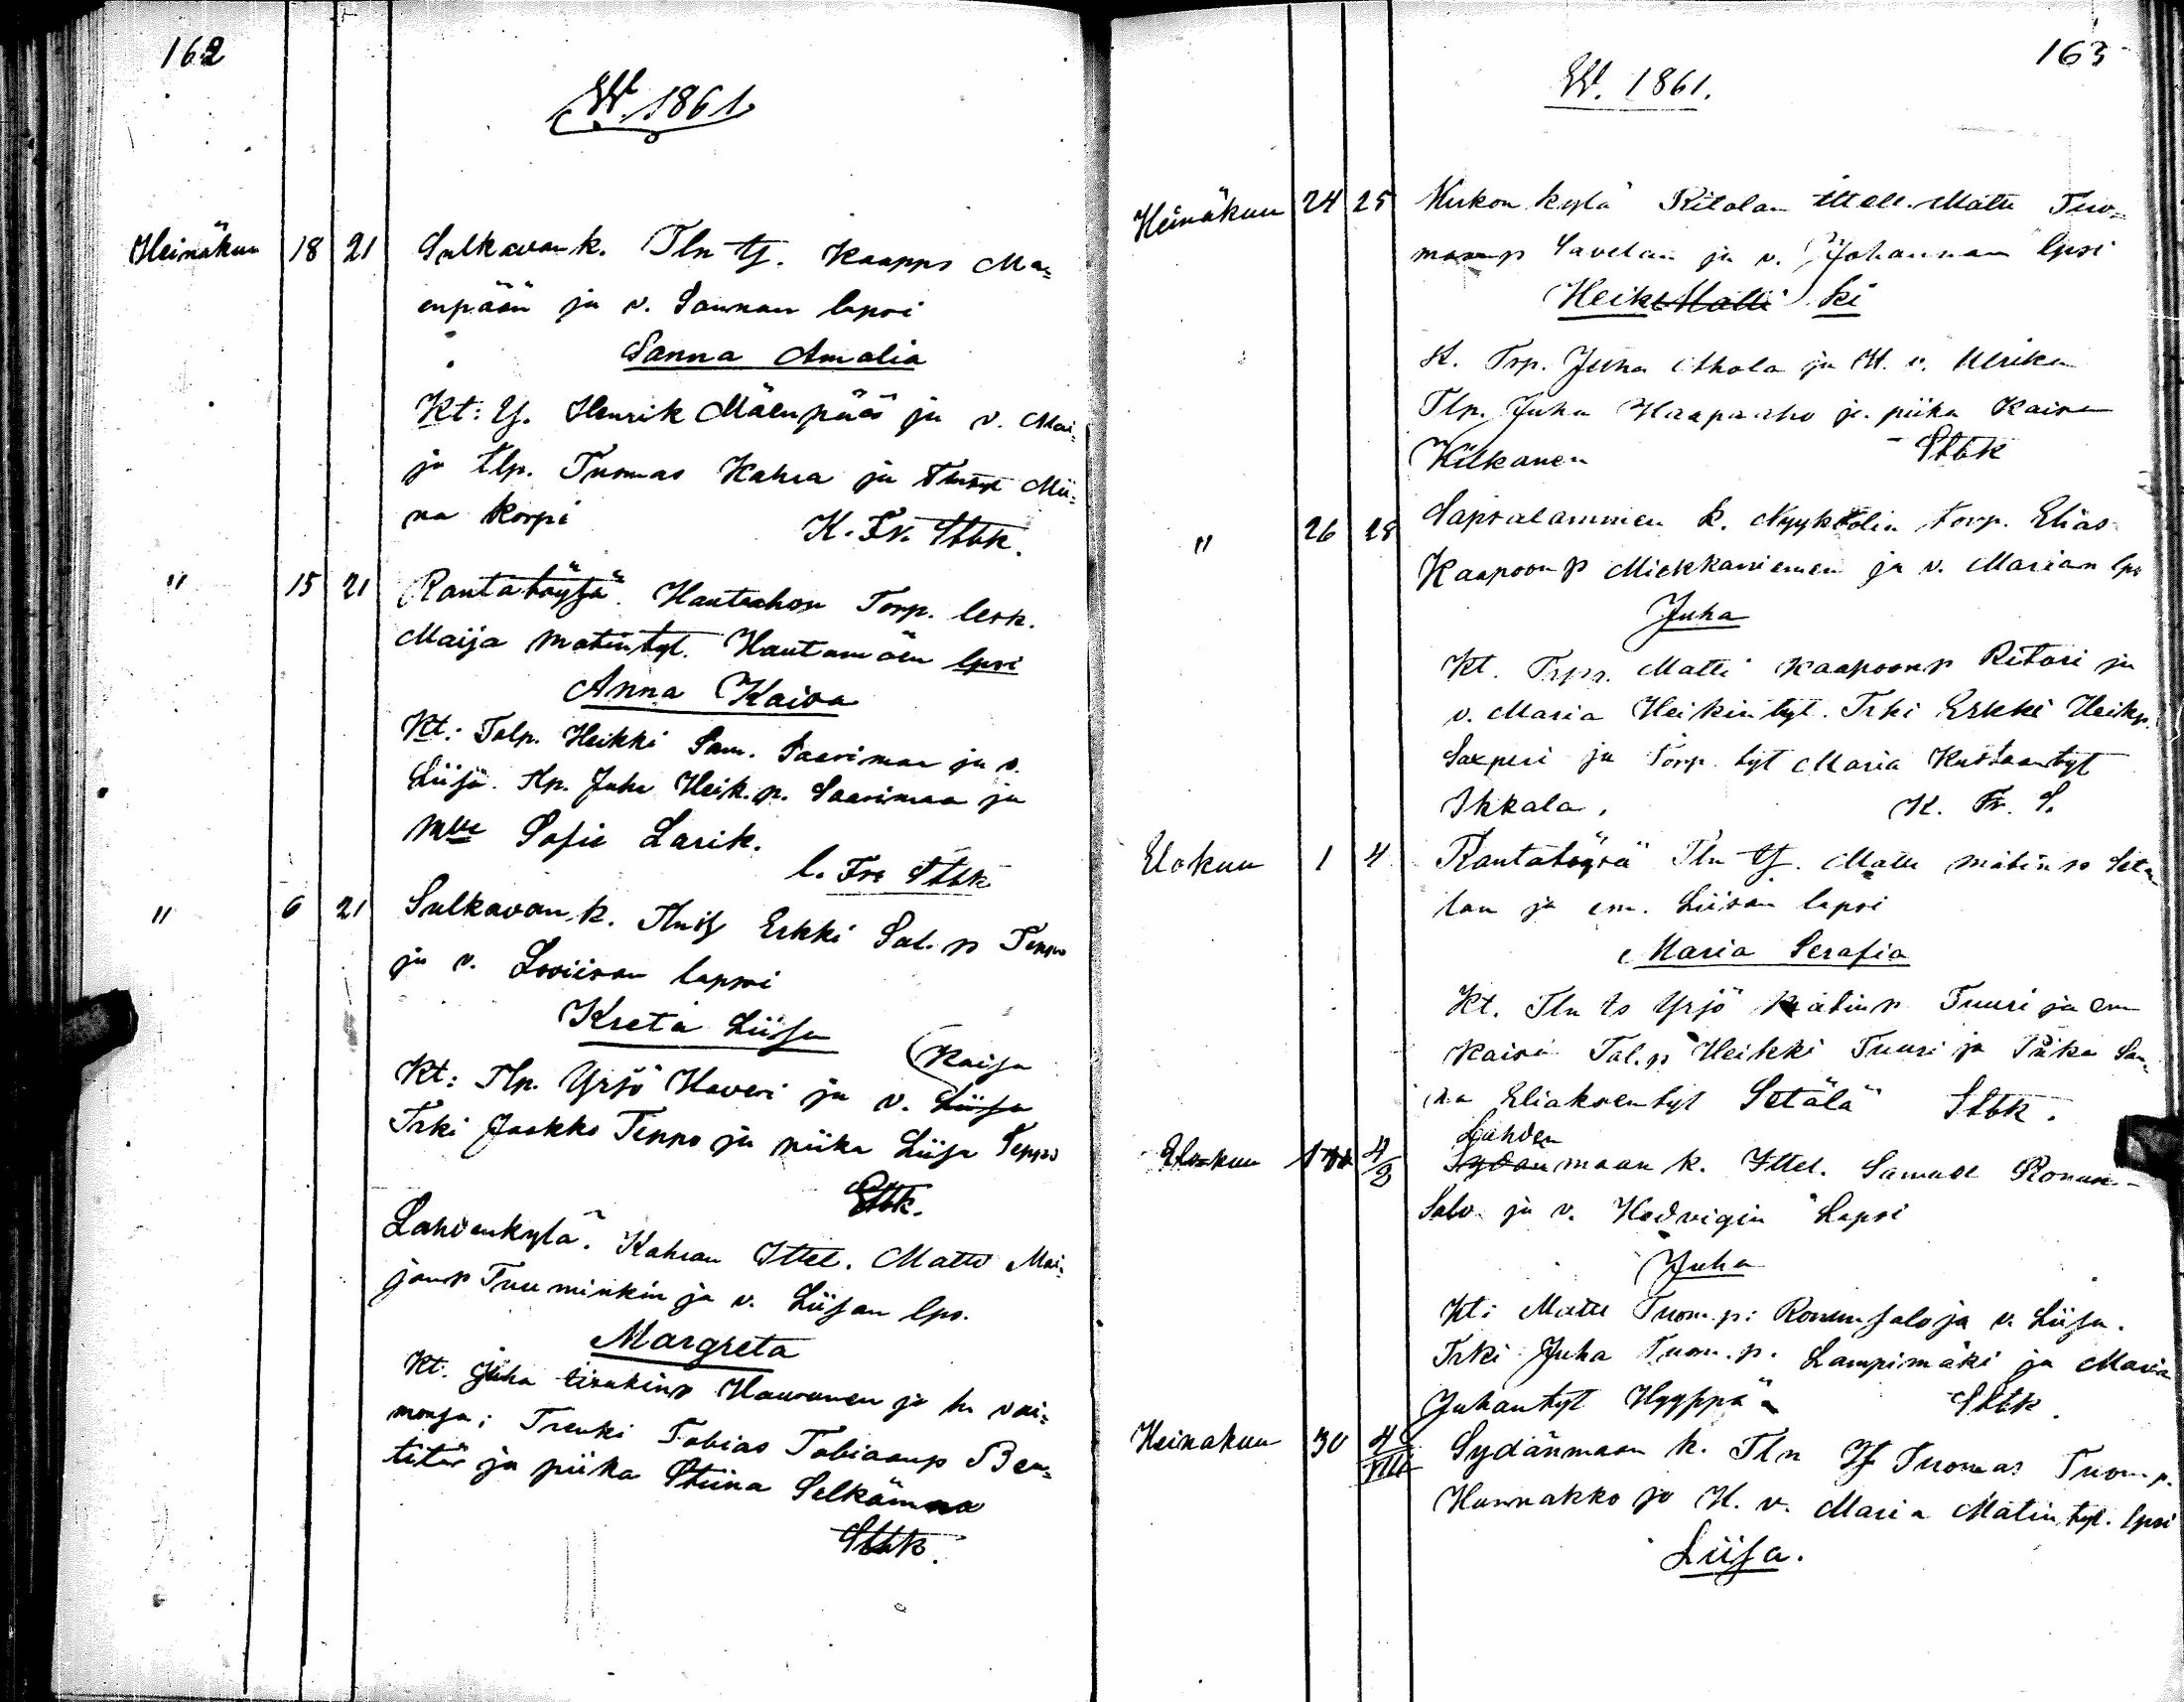 162
W. 1861
Heinäkuu 18 21 Sulkavan k. Tln tj. Kaapps Mä=
enpään ja v. Sannan lapsi
Sanna Amalia
Kt: Y. Henrik Mäenpää ja v. Mai=
ja tlp. Tuomas Kahra ja Mii=
na Korpi K. Fr. Stbk.
" 15 21 Rantatöysä. Hautaahon Torp. lesk.
Maija Matintyt. Hautamäen lpsi
Anna Kaisa
Kt: Talp. Heikki Sam. Saarimaa ja v.
Liisa. tlp. Juha Heik. p. Saarimaa ja
Mlle Sofie Larik.
C. Fre Stbk
" 6 21 Sulkavan k. Tln tj Erkki Sal. p Teppo
ja v. Loviisan lapsi
Kreta Liisa
(Kaisa
Kt: Tlp. Yrjö Haveri ja v. Liisa
Trki Jaakko Teppo ja piika Liisa Teppo
Stbk.
Lahdenkylä. Kahran Ittel. Matti Mai=
janp Tuuminkin ja v. Liisan lps.
Margreta
Kt. Juha Iisakinp Hauvunen ja hn vai=
monsa; Trenki Tobias Tobiaanp Ben=
titär ja piika Stiina Selkämaa
Stbk.
163
W. 1861.
Heinäkuu 24 25 Kirkon kylä Ritolan Ittell. Matti Tuo=
maanp Savelan ja v. Johannan lpsi
Heik Matti ki
K. Trp. Juha Ahola ja H. v. Ulrika
Tlp. Juha Haapaaho ja piika Kaisa
Kiikanen Stbk
" 26 28 Sapsalammen k. Nyyktölin torp. Elias
Kaapoonp Miekkaniemen ja v. Marian lps
Juha
Kt. Trpr. Matti Kaapoonp Ritari ja
v. Maria Heikintyt. Trki Erkki Heikp.
Saxperi ja Torp. tyt Maria Kustaantyt
Ikkala. K. Fr. S.
Elokuu 1 4 Rantatöysä Tln tj. Matti Matinp Setä
län ja em. Liisan lapsi
Maria Serafia
Kt. Tln ts Yrjö Matinp Tuuri ja em
Kaisa Tal.p Heikki Tuuri ja Piika San=
na Eliaksentyt Setälä Stbk.
Elokuu 1 4/8 Lahden
Sydänmaan k. Ittel. Samuel Ronun-
Salo ja v. Hedvigin Lapsi
Juha
Kt: Matti Tuom.p: Ronunsalo ja v. Liisa.
Trki Juha Tuom.p. Lampimäki ja Maria
Juhantyt Hyyppä Stbk.
Heinakuu 30 4/VIII Sydänmaan k. Tln Tj Tuomas Tuom p.
Hunnakko ja H. v. Maria Matin tyt. lpsi
Liisa.